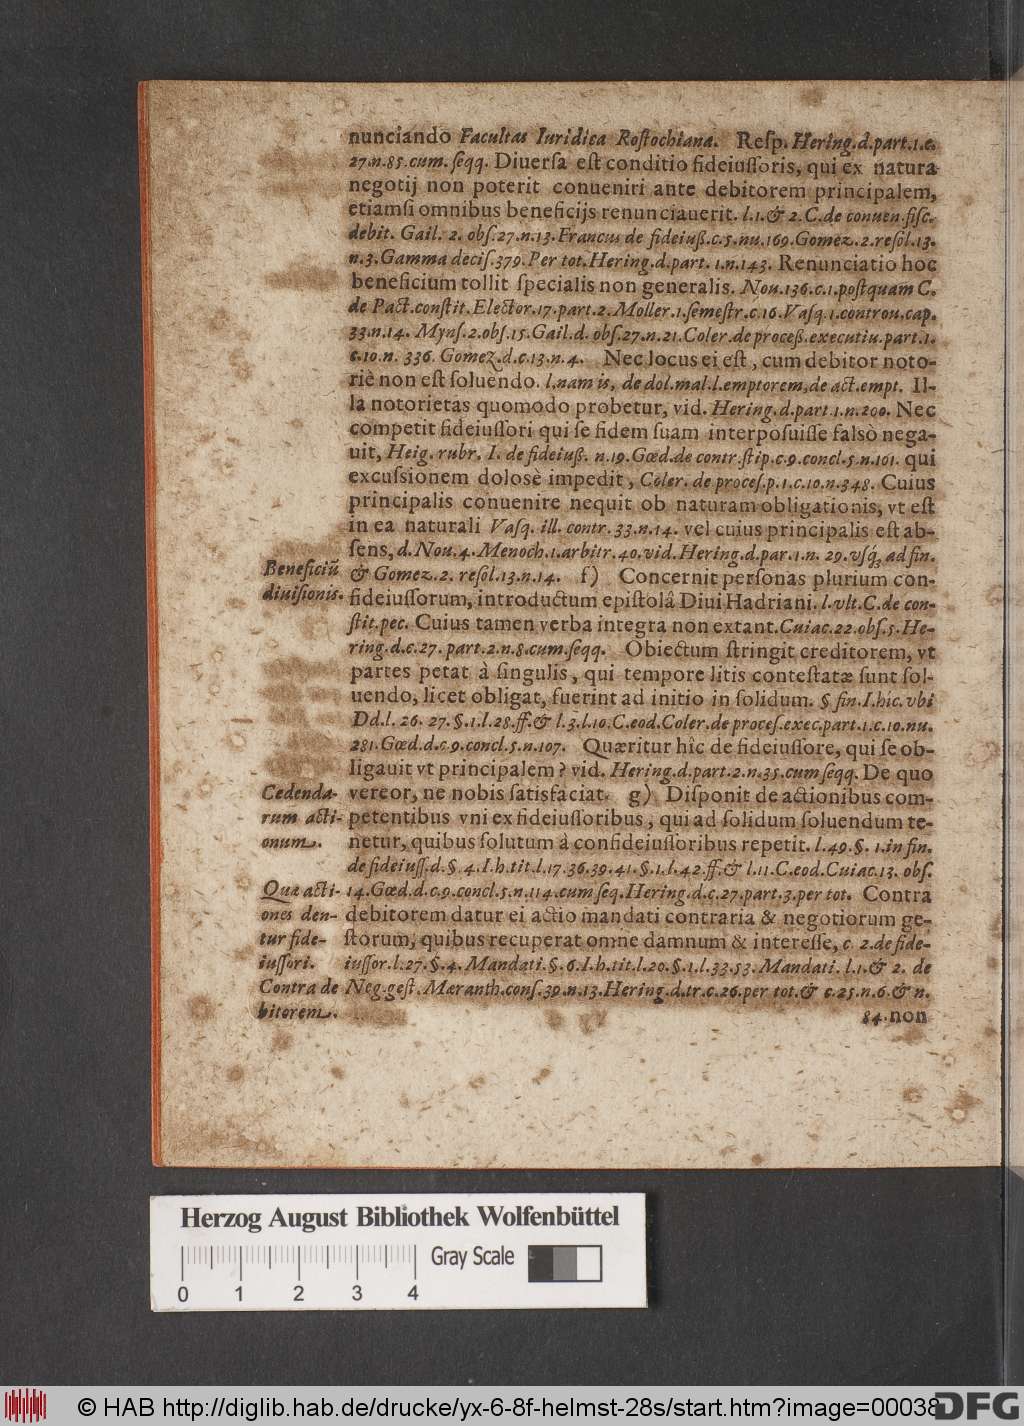 nunciando Facultas Iuridica Roſtochiana. Reſp. Hering.d.part.1.c.
27.n.85.cum.ſeqq. Diuerſa eſt conditio fideiuſſoris, qui ex natura
negotij non poterit conueniri ante debitorem principalem,
etiamſi omnibus beneficijs renunciauerit. l.1.& 2.C.de conuen.fiſc.
debit. Gail. 2. obſ.27.n.13.Francus de fideiuß.c.5.nu.169.Gomez.2.reſol.13.
n.3.Gamma deciſ.379.Per tot.Hering.d.part. 1.n.143. Renunciatio hoc
beneficium tollit ſpecialis non generalis. Nou.136.c.1.poſtquam C.
de Pact.conſtit.Elector.17.part.2.Moller.1.ſemeſtr.c.16.Vaſq.1.controu.cap.
33.n.14. Mynſ.2.obſ.15.Gail.d. obſ.27.n.21.Coler.de proceß.executiu.part.1.
c.10.n. 336. Gomez.d.c.13.n.4. Nec locus ei eſt, cum debitor noto-
riè non eſt ſoluendo. l.nam is, de dol.mal.l.emptorem,de act.empt. Il-
la notorietas quomodo probetur, vid. Hering.d.part.1.n.200. Nec
competit fideiuſſori qui ſe fidem ſuam interpoſuiſſe falsò nega-
uit, Heig. rubr. I. de fideiuß. n.19.Gœd.de contr.ſtip.c.9.concl.5.n.101. qui
excuſsionem dolosè impedit, Coler. de proceſ.p.1.c.10.n.348. Cuius
principalis conuenire nequit ob naturam obligationis, vt eſt
in ea naturali Vaſq. ill. contr. 33.n.14. vel cuius principalis eſt ab-
ſens, d. Nou.4. Menoch.1.arbitr.40.vid.Hering.d.par.1.n. 29.vſq́; ad fin.
Beneficiũ & Gomez.2. reſol.13.n.14. f) Concernit perſonas plurium con-
diuiſionis. fideiuſſorum, introductum epiſtolâ Diui Hadriani. l.vlt.C.de con-
ſtit.pec. Cuius tamen verba integra non extant. Cuiac.22.obſ.5.He-
ring.d.c.27. part.2.n.8.cum.ſeqq. Obiectum ſtringit creditorem, vt
partes petat à ſingulis, qui tempore litis conteſtatæ ſunt ſol-
uendo, licet obligat, fuerint ad initio in ſolidum. § fin.I.hic.vbi
Dd.l. 26. 27.§.1.l.28.ff.& l.3.l.10.C.eod.Coler.de proceſ.exec.part.1.c.10.nu.
281.Gœd.d.c.9.concl.5.n.107. Quæritur hîc de fideiuſſore, qui ſe ob-
ligauit vt principalem? vid. Hering.d.part.2.n.35.cum ſeqq. De quo
Cedenda- vereor, ne nobis ſatisfaciat. g) Diſponit de actionibus com-
rum acti- petentibus vni ex fideiuſſoribus, qui ad ſolidum ſoluendum te-
onum. netur, quibus ſolutum à confideiuſſoribus repetit. l.49.§. 1.in fin.
de fideiuſſ.d.§.4.I.h.tit.l.17.36.39.41.§.1.l.42.ff.& l.11.C.eod.Cuiac.13. obſ.
Quæ acti- 14.Gœd.d.c.9.concl.5.n.114.cum ſeq.Hering.d.c.27.part.3.per tot. Contra
ones den- debitorem datur ei actio mandati contraria & negotiorum ge-
tur fide- ſtorum, quibus recuperat omne damnum & intereſſe, c. 2.de fide-
iuſſori. iuſſor.l.27.§.4. Mandati.§.6.I.h.tit.l.20.§.1.l.33.53.Mandati. l.1.& 2. de
Contra de Neg.geſt.Mæranth.conſ.39.n.13.Hering.d.tr.c.26.per tot.& c.25.n.6.& n.
bitorem. 84. non
Herzog August Bibliothek Wolfenbüttel
Gray Scale
0 1 2 3 4
© HAB http://diglib.hab.de/drucke/yx-6-8f-helmst-28s/start.htm?image=00038
DFG